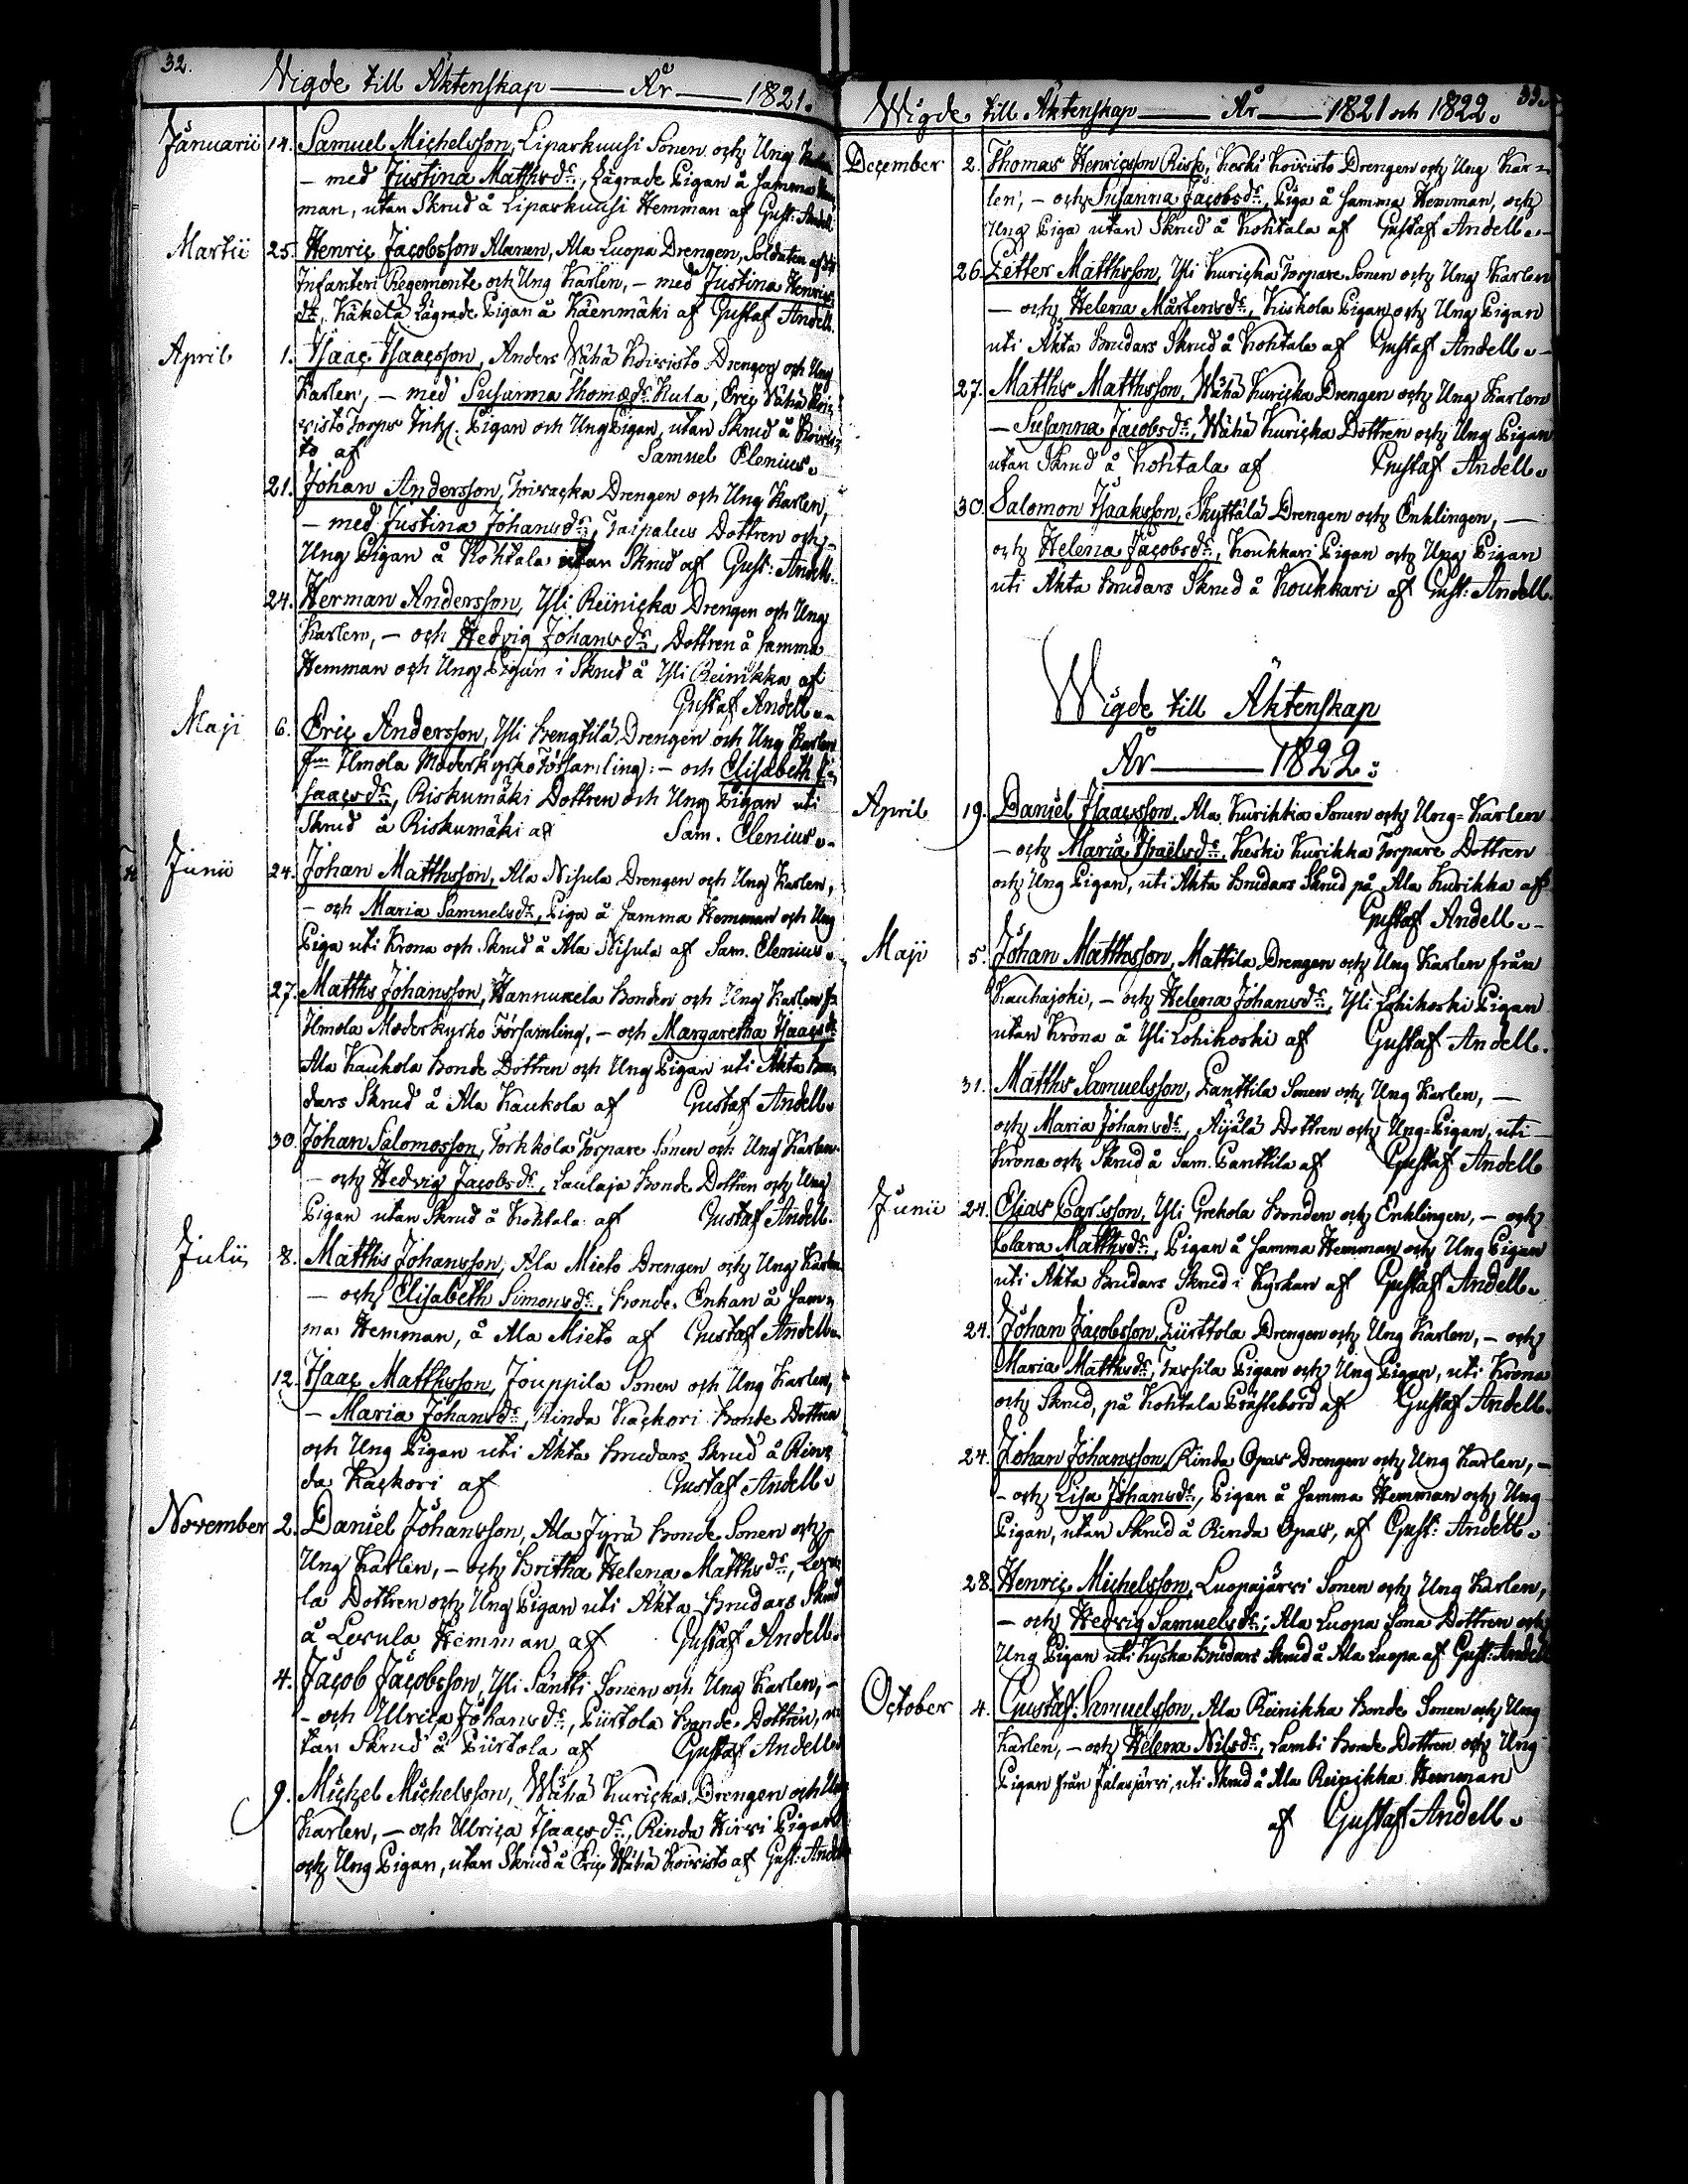 32.
Vigde till Äktenskap — År — 1821.
Januarii 14. Samuel Michelsson, Liparkuusi Sonen och Ung Karlen
– med Justina Matthsdr, Lägrade Pigan å samma Hem
man, utan Skrud å Liparkuusi Hemman af Gust: Andell
Martii 25. Henric Jacobsson Alanen, Ala Luopa Drengen, Soldaten af
Infanteri Regemente och Ung Karlen, – med Justina Henrics
dr, Käkelä Lägrade Pigan å Käenmäki af Gustaf Andell.
April 1. Isaac Isaacsson, Anders Wähä Koivisto Drengen och Ung
Karlen, – med Susanna Thomædr Kula, Eric Wähä Koi
visto Torps Inh. Pigan och Ung Pigan, utan Skrud å Koivis
to af Samuel Elenius.
21. Johan Andersson, Koivacka Drengen och Ung Karlen,
– med Justina Johansdr, Taipalus Dottren och
Ung Pigan å Kohtala utan Skrud af Gust: Andell.
24. Herman Andersson, Yli Reinicka Drengen och Ung
Karlen, – och Hedvig Johansdr, Dottren å samma
Hemman och Ung Pigan i Skrud å Yli Reinikka af
Gustaf Andell.
Maji 6. Eric Andersson, Yli Bengtilä Drengen och Ung Karlen
frn Ilmola Moderkyrko Församling: – och Elisabeth I
saacsdr, Riskumäki Dottren och Ung Pigan uti
Skrud å Riskumäki af Sam. Elenius.
Junii 24. Johan Matthsson, Ala Nisula Drengen och Ung Karlen,
– och Maria Samuelsdr, Piga å samma Hemman och Ung
Piga uti Krona och Skrud å Ala Nisula af Sam. Elenius.
27. Matths Johansson, Hannukela Bonden och Ung Karlen fr
Ilmola Moderkyrko Församling, – och Margaretha Isaacsdr
Ala Kaukola Bonde Dottren och Ung Pigan uti Äkta Bru
dars Skrud å Ala Kaukola af Gustaf Andell.
30. Johan Salomosson, Torkkola Torpare Sonen och Ung Karlen
– och Hedvig Jacobsdr, Laulaja Bonde Dottren och Ung
Pigan utan Skrud å Kohtala af Gustaf Andell.
Julii 8. Matths Johansson, Ala Mieto Drengen och Ung Karlen
– och Elisabeth Simonsdr, Bonde Enkan å sam
ma Hemman, å Ala Mieto af Gustaf Andell.
12. Isaac Matthsson, Jouppila Sonen och Ung Karlen,
– Maria Johansdr, Rinda Kackori Bonde Dottren
och Ung Pigan uti Äkta Brudars Skrud å Rin
da Kackori af Gustaf Andell.
November 2. Daniel Johansson, Ala Jyrä Bonde Sonen och
Ung Karlen, – och Britha Helena Matthsdr, Levu
la Dottren och Ung Pigan uti Äkta Brudars Skrud
å Levula Hemman af Gustaf Andell.
4. Jacob Jacobsson, Yli Säntti Sonen och Ung Karlen, –
– och Ulrica Johansdr, Piirtola Bonde Dottren, u
tan Skrud å Piirtola af Gustaf Andell.
9. Michel Michelsson, Wähä Kuricka Drengen och Ung
Karlen, – och Ulrica Isaacsdr, Rinda Hirvi Pigan
och Ung Pigan, utan Skrud å Eric Wähä Koivisto af Gust: Andell
33.
Wigde till Äktenskap — År — 1821 och 1822.
December 2. Thomas Henricsson Risk, Keski Koivisto Drengen och Ung Kar
len, – och Susanna Jacobsdr, Piga å samma Hemman, och
Ung Piga utan Skrud å Kohtala af Gustaf Andell.
26. Petter Matthsson, Yli Kuricka Torpare Sonen och Ung Karlen
– och Helena Mårtensdr, Kiskola Pigan och Ung Pigan
uti Äkta Brudars Skrud å Kohtala af Gustaf Andell.
27. Matths Matthsson, Wähä Kuricka Drengen och Ung Karlen
– Susanna Jacobsdr, Wähä Kuricka Dottren och Ung Pigan
utan Skrud å Kohtala af Gustaf Andell.
30. Salomon Isaaksson, Skyttälä Drengen och Enklingen, —
och Helena Jacobsdr, Koukkari Pigan och Ung Pigan
uti Äkta Brudars Skrud å Koukkari af Gust: Andell.
Wigde till Äktenskap
År — 1822.
April 19. Daniel Isaacsson, Ala Kurikka Sonen och Ung-Karlen
– och Maria Israelsdr, Keski Kurikka Torpare Dottren
och Ung Pigan, uti Äkta Brudars Skrud på Ala Kurikka af
Gustaf Andell.
Maji 5. Johan Matthsson, Mattila Drengen och Ung Karlen från
Kauhajoki, – och Helena Johansdr, Yli Lohikoski Pigan
utan Krona å Yli Lohikoski af Gustaf Andell.
31. Matths Samuelsson, Panttila Sonen och Ung Karlen, —
och Maria Johansdr, Äijälä Dottren och Ung-Pigan, uti
Krona och Skrud å Sam. Panttila af Gustaf Andell
Junii 24. Elias Carlsson, Yli Grekola Bonden och Enklingen, – och
Clara Matthsdr, Pigan å samma Hemman och Ung Pigan
uti Äkta Brudars Skrud i Kyrkan af Gustaf Andell.
24. Johan Jacobsson, Piirttola Drengen och Ung Karlen, – och
Maria Matthsdr, Tassila Pigan och Ung Pigan, uti Krona
och Skrud, på Kohtala Prästebord af Gustaf Andell.
24. Johan Johansson, Rinda Opas Drengen och Ung Karlen, –
– och Lisa Johansdr, Pigan å samma Hemman och Ung
Pigan, utan Skrud å Rinda Opas, af Gust: Andell.
28. Henric Michelsson, Luopajärvi Sonen och Ung Karlen,
– och Hedvig Samuelsdr, Ala Luopa Sona Dottren och
Ung Pigan uti Kyska Brudars Skrud å Ala Luopa af Gust: Andell
October 4. Gustaf Samuelsson, Ala Reinikka Bonde Sonen och Ung
Karlen, – och Helena Nilsdr, Lambi Bonde Dottren och Ung
Pigan från Jalasjärvi, uti Skrud å Ala Reinicka Hemman
af Gustaf Andell.